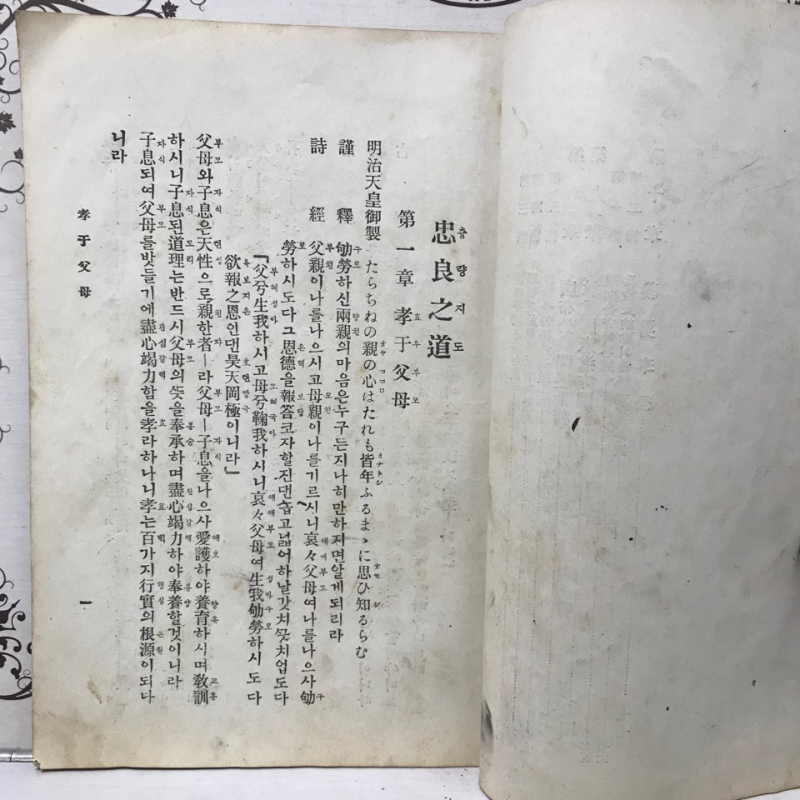 忠良之道
충량지도
第一章 孝于父母
효우부모
明治天皇御製 たらちねの親の心はたれも皆年ふるまゝに思ひ知るらむ
謹釋 劬勞하신兩親의마음은누구든지나히만하지면알게되리라
詩經 父親이나를나으시고母親이나를기르시니哀々父母여나를나으사劬
勞하시도다그恩德을報答코자할진댄놉고넓어하날갓치씃치업도다
「父兮生我하시고母兮鞠我하시니哀々父母여生我劬勞하시도다
欲報之恩인대昊天罔極이니라」
父母와子息은天性으로親한者ㅣ라父母ㅣ子息을나으사愛護하야養育하시며敎訓
하시니子息된道理는반드시父母의뜻을奉承하며盡心竭力하야奉養할것이니라
子息되여父母를밧들기에盡心竭力함을孝라하나니孝는百가지行實의根源이되나
니라
孝于父母
一